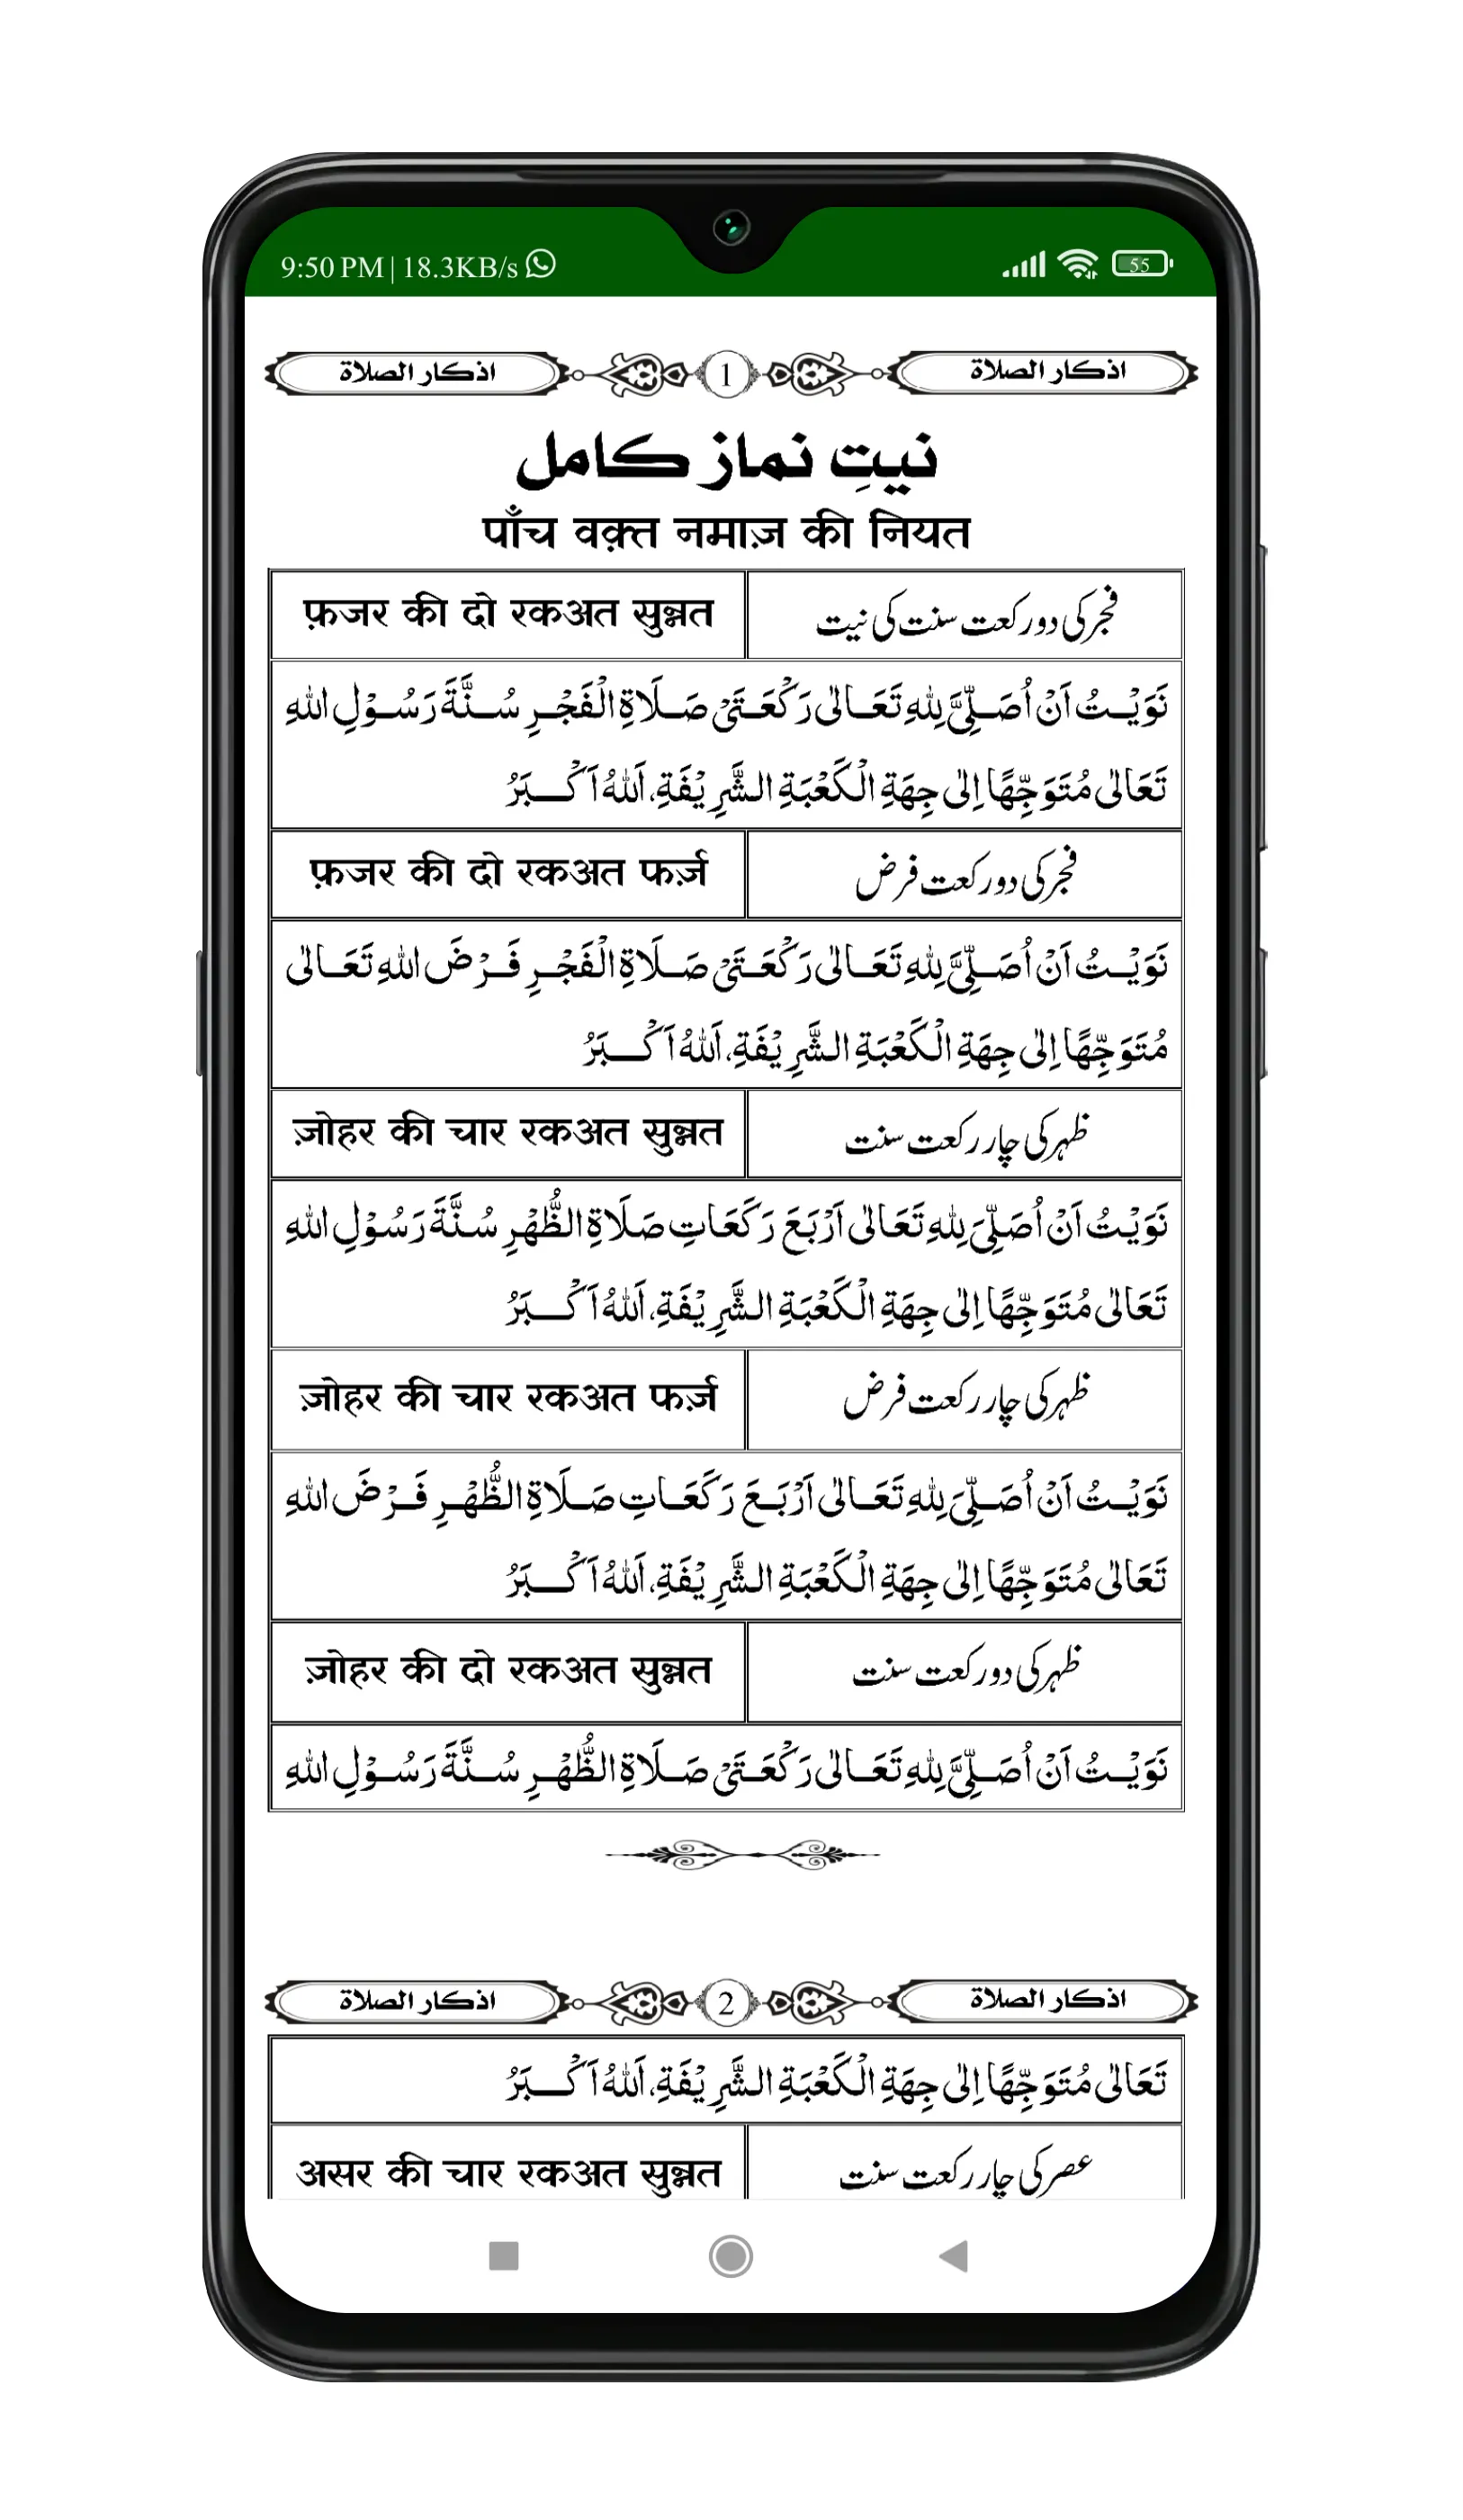 9:50 PM | 18.3KB/s 55
اذکار الصلاة 1 اذکار الصلاة
نیتِ نماز کامل
पाँच वक़्त नमाज़ की नियत
फ़जर की दो रकअत सुन्नत فجر کی دو رکعت سنت کی نیت
نَوَيْتُ اَنْ اُصَلِّيَّ لِلّٰهِ تَعَالٰى رَكْعَتَىْ صَلَاةِ الْفَجْرِ سُنَّةَ رَسُوْلِ اللّٰهِ
تَعَالٰى مُتَوَجِّهًا اِلٰى جِهَةِ الْكَعْبَةِ الشَّرِيْفَةِ، اَللّٰهُ اَكْبَرُ
फ़जर की दो रकअत फर्ज़ فجر کی دو رکعت فرض
نَوَيْتُ اَنْ اُصَلِّيَّ لِلّٰهِ تَعَالٰى رَكْعَتَىْ صَلَاةِ الْفَجْرِ فَرْضَ اللّٰهِ تَعَالٰى
مُتَوَجِّهًا اِلٰى جِهَةِ الْكَعْبَةِ الشَّرِيْفَةِ، اَللّٰهُ اَكْبَرُ
ज़ोहर की चार रकअत सुन्नत ظہر کی چار رکعت سنت
نَوَيْتُ اَنْ اُصَلِّىَ لِلّٰهِ تَعَالٰى اَرْبَعَ رَكَعَاتِ صَلَاةِ الظُّهْرِ سُنَّةَ رَسُوْلِ اللّٰهِ
تَعَالٰى مُتَوَجِّهًا اِلٰى جِهَةِ الْكَعْبَةِ الشَّرِيْفَةِ، اَللّٰهُ اَكْبَرُ
ज़ोहर की चार रकअत फर्ज़ ظہر کی چار رکعت فرض
نَوَيْتُ اَنْ اُصَلِّىَ لِلّٰهِ تَعَالٰى اَرْبَعَ رَكَعَاتِ صَلَاةِ الظُّهْرِ فَرْضَ اللّٰهِ
تَعَالٰى مُتَوَجِّهًا اِلٰى جِهَةِ الْكَعْبَةِ الشَّرِيْفَةِ، اَللّٰهُ اَكْبَرُ
ज़ोहर की दो रकअत सुन्नत ظہر کی دو رکعت سنت
نَوَيْتُ اَنْ اُصَلِّيَّ لِلّٰهِ تَعَالٰى رَكْعَتَىْ صَلَاةِ الظُّهْرِ سُنَّةَ رَسُوْلِ اللّٰهِ
اذکار الصلاة 2 اذکار الصلاة
تَعَالٰى مُتَوَجِّهًا اِلٰى جِهَةِ الْكَعْبَةِ الشَّرِيْفَةِ، اَللّٰهُ اَكْبَرُ
असर की चार रकअत सुन्नत عصر کی چار رکعت سنت